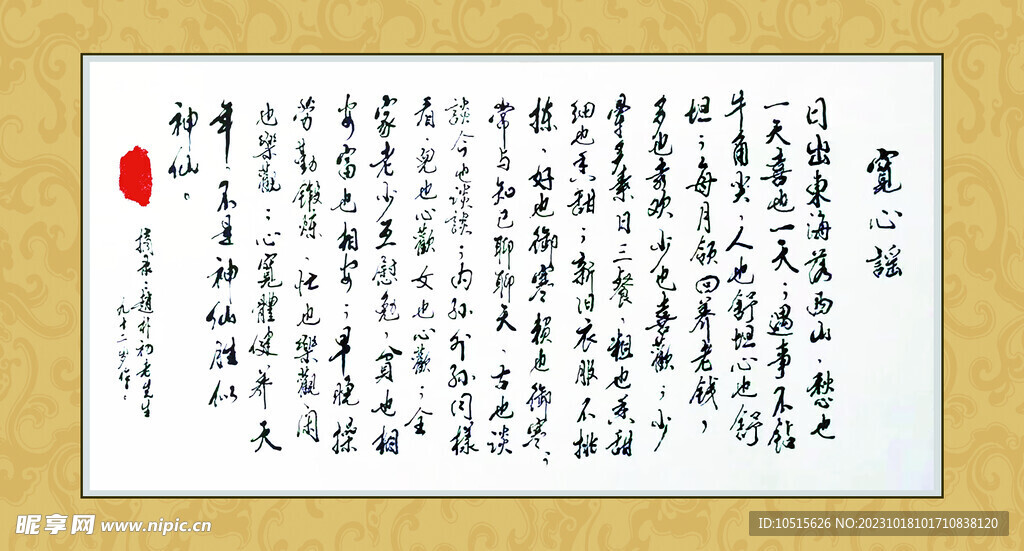 寬心謠
日出東海落西山、愁也
一天喜也一天；遇事不鉆
牛角尖，人也舒坦心也舒
坦；每月領回养老钱，
多也喜欢少也喜歡；少
葷多素日三餐、粗也香甜
细也香甜；新旧衣服不挑
拣、好也御寒赖也御寒；
常与知己聊聊天、古也谈
談今也谈談；内孙外孙同樣
看，児也心歡女也心歡；全
家老少互慰勉，貧也相
安富也相安；早晚操
劳勤鍛炼、忙也樂觀闲
也樂觀；心寬體健养天
年，不是神仙胜似
神仙。
摘录：趙朴初老先生
九十二岁作。
昵享网 www.nipic.cn
ID:10515626 NO:20231018101710838120